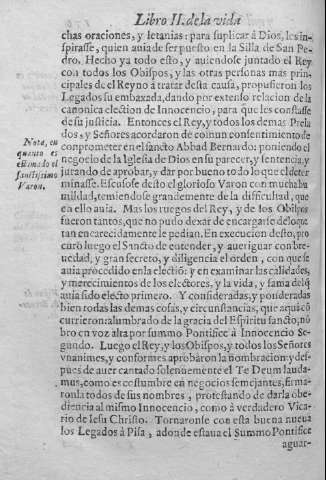 Libro II. de la vida
chas oraciones, y letanias: para suplicar à Dios, les ins-
pirasse, quien auia de ser puesto en la Silla de San Pe-
dro. Hecho ya todo esto, y auiendose juntado el Rey
con todos los Obispos, y las otras personas mas prin-
cipales de el Reyno à tratar desta causa, propusieron los
Legados su embaxada, dando por extenso relacion de la
canonica election de Innocencio, para que les constasse
de su justicia. Entonces el Rey, y todos los demas Prela
dos, y Señores acordaron de comun consentimiento de
comprometer en el sancto Abbad Bernardo: poniendo el
negocio de la Iglesia de Dios en su parecer, y sentencia, y
jurando de aprobar, y dar por bueno todo lo que el deter
minasse. Escusose desto el glorioso Varon con mucha hu
mildad, temiendose grandemente de la difficultad, que
en ello auia. Mas los ruegos del Rey, y de los Obispos
fueron tantos, que no pudo dexar de encargarse de lo que
tan encarecidamente le pedian. En execucion desto, pro
curò luego el Sancto de entender, y aueriguar con bre-
uedad, y gran secreto, y diligencia el orden, con que se
auia procedido en la electiõ: y en examinar las calidades,
y merecimientos de los electores, y la vida, y fama del q̃
auia sido electo primero. Y consideradas, y ponderadas
bien todas las demas cosas, y circunstancias, que aqui cõ
currieron: alumbrado de la gracia del Espiritu sancto, nõ
brò en voz alta por summo Pontifice à Innocencio Se-
gundo. Luego el Rey, y los Obispos, y todos los Señores
vnanimes, y conformes aprobaron la nombracion: y des-
pues de auer cantado solennemente el Te Deum lauda-
mus, como es costumbre en negocios semejantes, firma-
ronla todos de sus nombres, protestando de darla obe-
diencia al mismo Innocencio, como à verdadero Vica-
rio de Iesu Christo. Tornaronse con esta buena nueua
los Legados à Pisa, adonde estaua el Summo Pontifice
aguar-
Nota, en
quanto es
estimado el
sanctissimo
Varon.